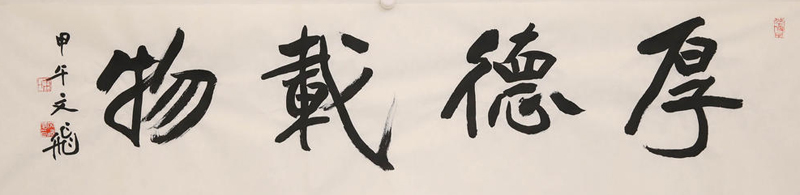 厚德載物
甲午文飛